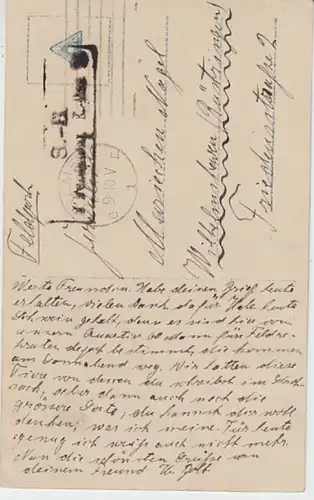 Feldpost
S.B
Marinchen Nagel
Wilhelmshaven Rüstringen
Friederikenstraße 2
Werte Freundin. Habe deinen Brief heute
erhalten, vielen Dank dafür. Habe heute
Schwein gehabt, denn es sind hier von
unserm Quartier 60 Mann fürs Feldre-
kruten depot bestimmt, die kommen
am Sonnabend weg. Wir hatten diese
Tiere von denen du schreibst im Stroh-
sack, aber dann auch noch die
grössere Sorte, du kannst dir wohl
denken, was ich meine. Für heute
genug ich weiß auch nicht mehr.
Nun die schönsten Grüsse von
deinem Freund H.